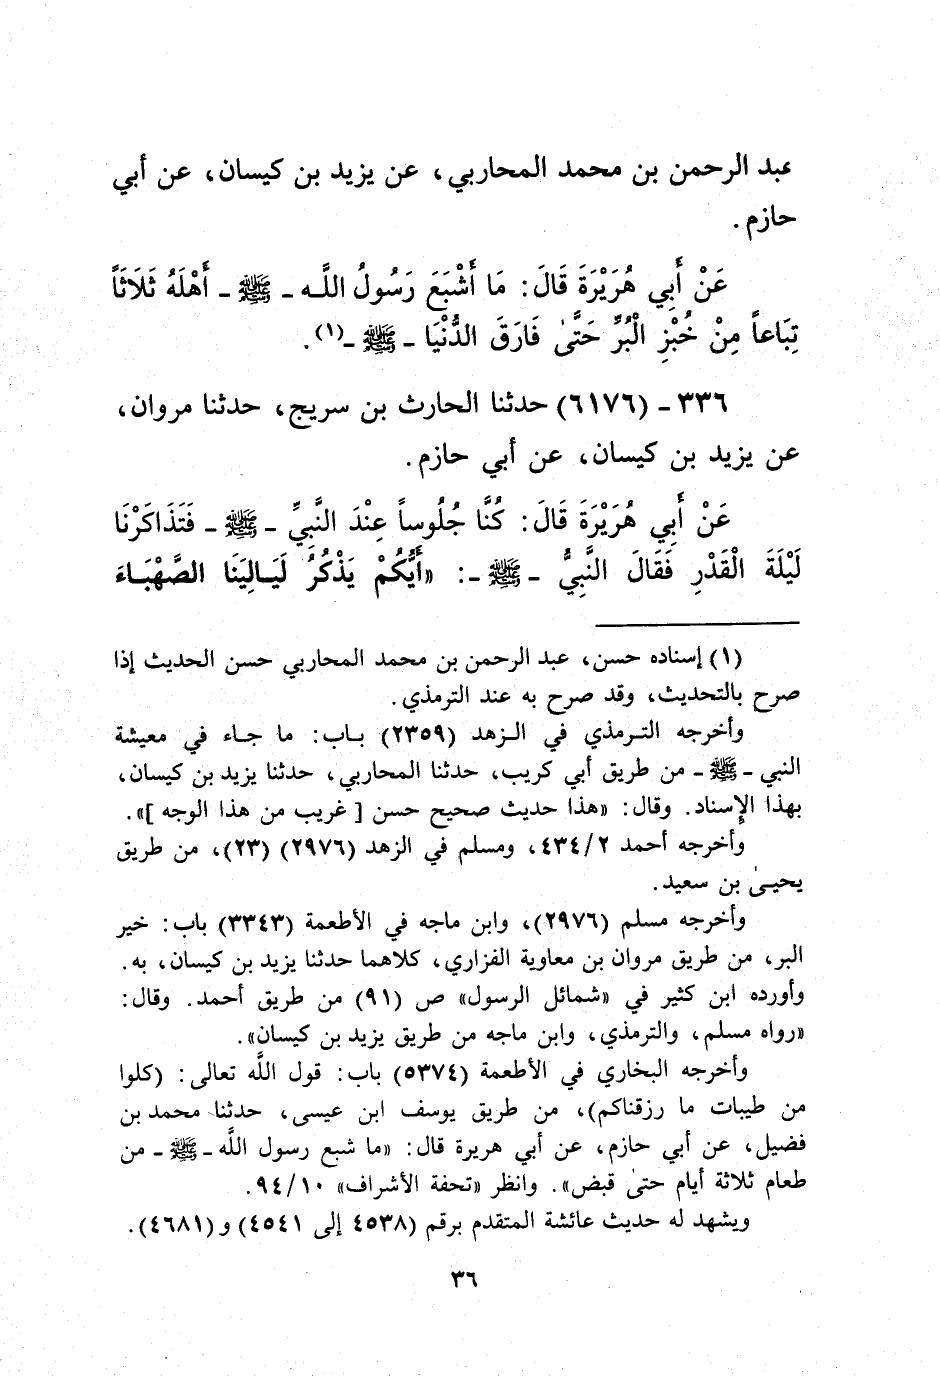 عبد الرحمن بن محمد المحاربي، عن يزيد بن كيسان، عن أبي
حازم.
عَنْ أَبِي هُرَيْرَةَ قَالَ: مَا أَشْبَعَ رَسُولُ اللَّـه ـ ﷺ ـ أَهْلَهُ ثَلَاثَاً
تِبَاعاً مِنْ خُبْزِ الْبُرِّ حَتَّىٰ فَارَقَ الدُّنْيَا ـ ﷺ ـ(١).
٣٣٦ ـ (٦١٧٦) حدثنا الحارث بن سريج، حدثنا مروان،
عن يزيد بن كيسان، عن أبي حازم.
عَنْ أَبِي هُرَيْرَةَ قَالَ: كُنَّا جُلُوساً عِنْدَ النَّبِيِّ ـ ﷺ ـ فَتَذَاكَرْنَا
لَيْلَةَ الْقَدْرِ فَقَالَ النَّبِيُّ ـ ﷺ ـ: «أَيُّكُمْ يَذْكُرُ لَيَـالِيَنَا الصَّهْبَـاءَ
(١) إسناده حسن، عبد الرحمن بن محمد المحاربي حسن الحديث إذا
صرح بالتحديث، وقد صرح به عند الترمذي.
وأخرجه التـرمذي في الـزهد (٢٣٥٩) بـاب: ما جـاء في معيشة
النبي ـ ﷺ ـ من طريق أبي كريب، حدثنا المحاربي، حدثنا يزيد بن كيسان،
بهذا الإسناد. وقال: «هذا حديث صحيح حسن [ غريب من هذا الوجه ]».
وأخرجه أحمد ٤٣٤/٢، ومسلم في الزهد (٢٩٧٦) (٢٣)، من طريق
يحيـىٰ بن سعيد.
وأخرجه مسلم (٢٩٧٦)، وابن ماجه في الأطعمة (٣٣٤٣) باب: خير
البر، من طريق مروان بن معاوية الفزاري، كلاهما حدثنا يزيد بن كيسان، به.
وأورده ابن كثير في «شمائل الرسول» ص (٩١) من طريق أحمد. وقال:
«رواه مسلم، والترمذي، وابن ماجه من طريق يزيد بن كيسان».
وأخرجه البخاري في الأطعمة (٥٣٧٤) باب: قول اللَّه تعالى: (كلوا
من طيبات ما رزقناكم)، من طريق يوسف ابن عيسى، حدثنا محمد بن
فضيل، عن أبي حازم، عن أبي هريرة قال: «ما شبع رسول اللَّه ـ ﷺ ـ من
طعام ثلاثة أيام حتىٰ قبض». وانظر «تحفة الأشراف» ٩٤/١٠.
ويشهد له حديث عائشة المتقدم برقم (٤٥٣٨ إلى ٤٥٤١) و (٤٦٨١).
٣٦